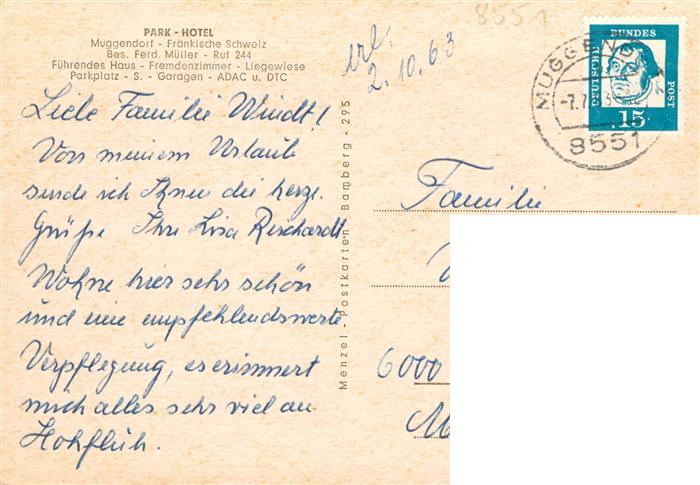 PARK - HOTEL
Muggendorf - Fränkische Schweiz
Bes. Ferd. Müller - Ruf 244
Führendes Haus - Fremdenzimmer - Liegewiese
Parkplatz - S. - Garagen - ADAC u. DTC
Liebe Familie Windt!
Von meinem Urlaub
sende ich Ihnen die herzl.
Grüße Ihre Lisa Reichardt.
Wohne hier sehr schön
und eine empfehlendswerte
Verpflegung, es erinnert
mich alles sehr viel an
Hohfluh.
Menzel - Postkarten Bamberg - 295
erl.
2.10.63
8551
MUGGENDO
-7.7
8551
DEUTSCHE BUNDES POST
15
Familie
6000